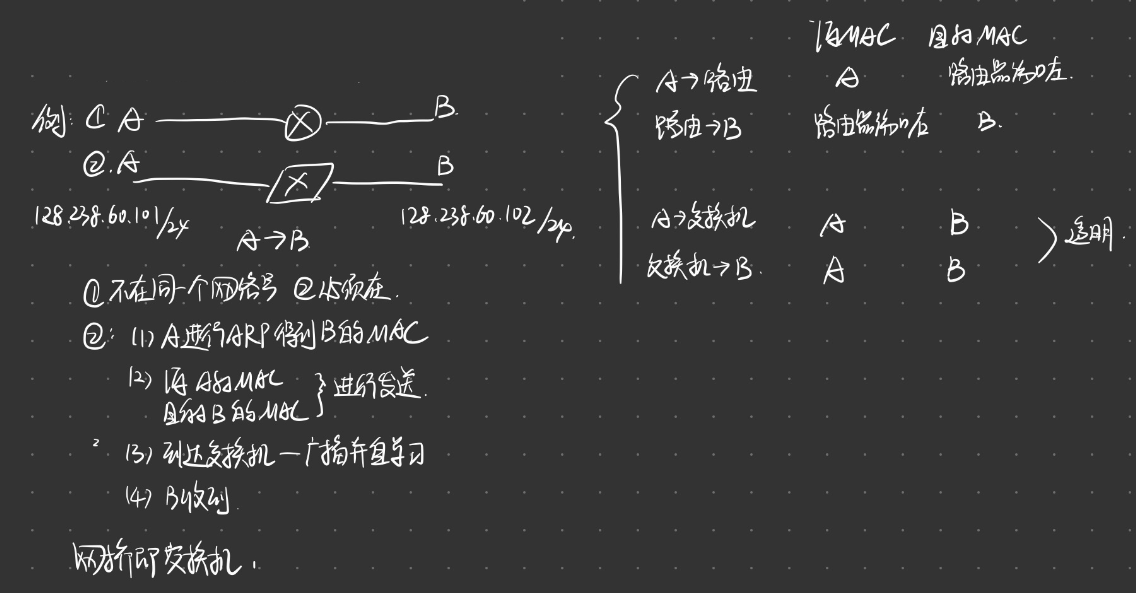 例: ① A B
②. A B
128.238.60.101/24 128.238.60.102/24.
A→B
① 不在同一个网络号 ② 必须在.
②: (1) A进行ARP得到B的MAC
(2) 源 A的MAC
目的 B的MAC } 进行发送.
(3) 到达交换机—广播并自学习
(4) B收到.
网桥即交换机.
源MAC 目的MAC
A→路由 A 路由器端口左.
路由→B 路由器端口右 B.
A→交换机 A B
交换机→B. A B
透明.